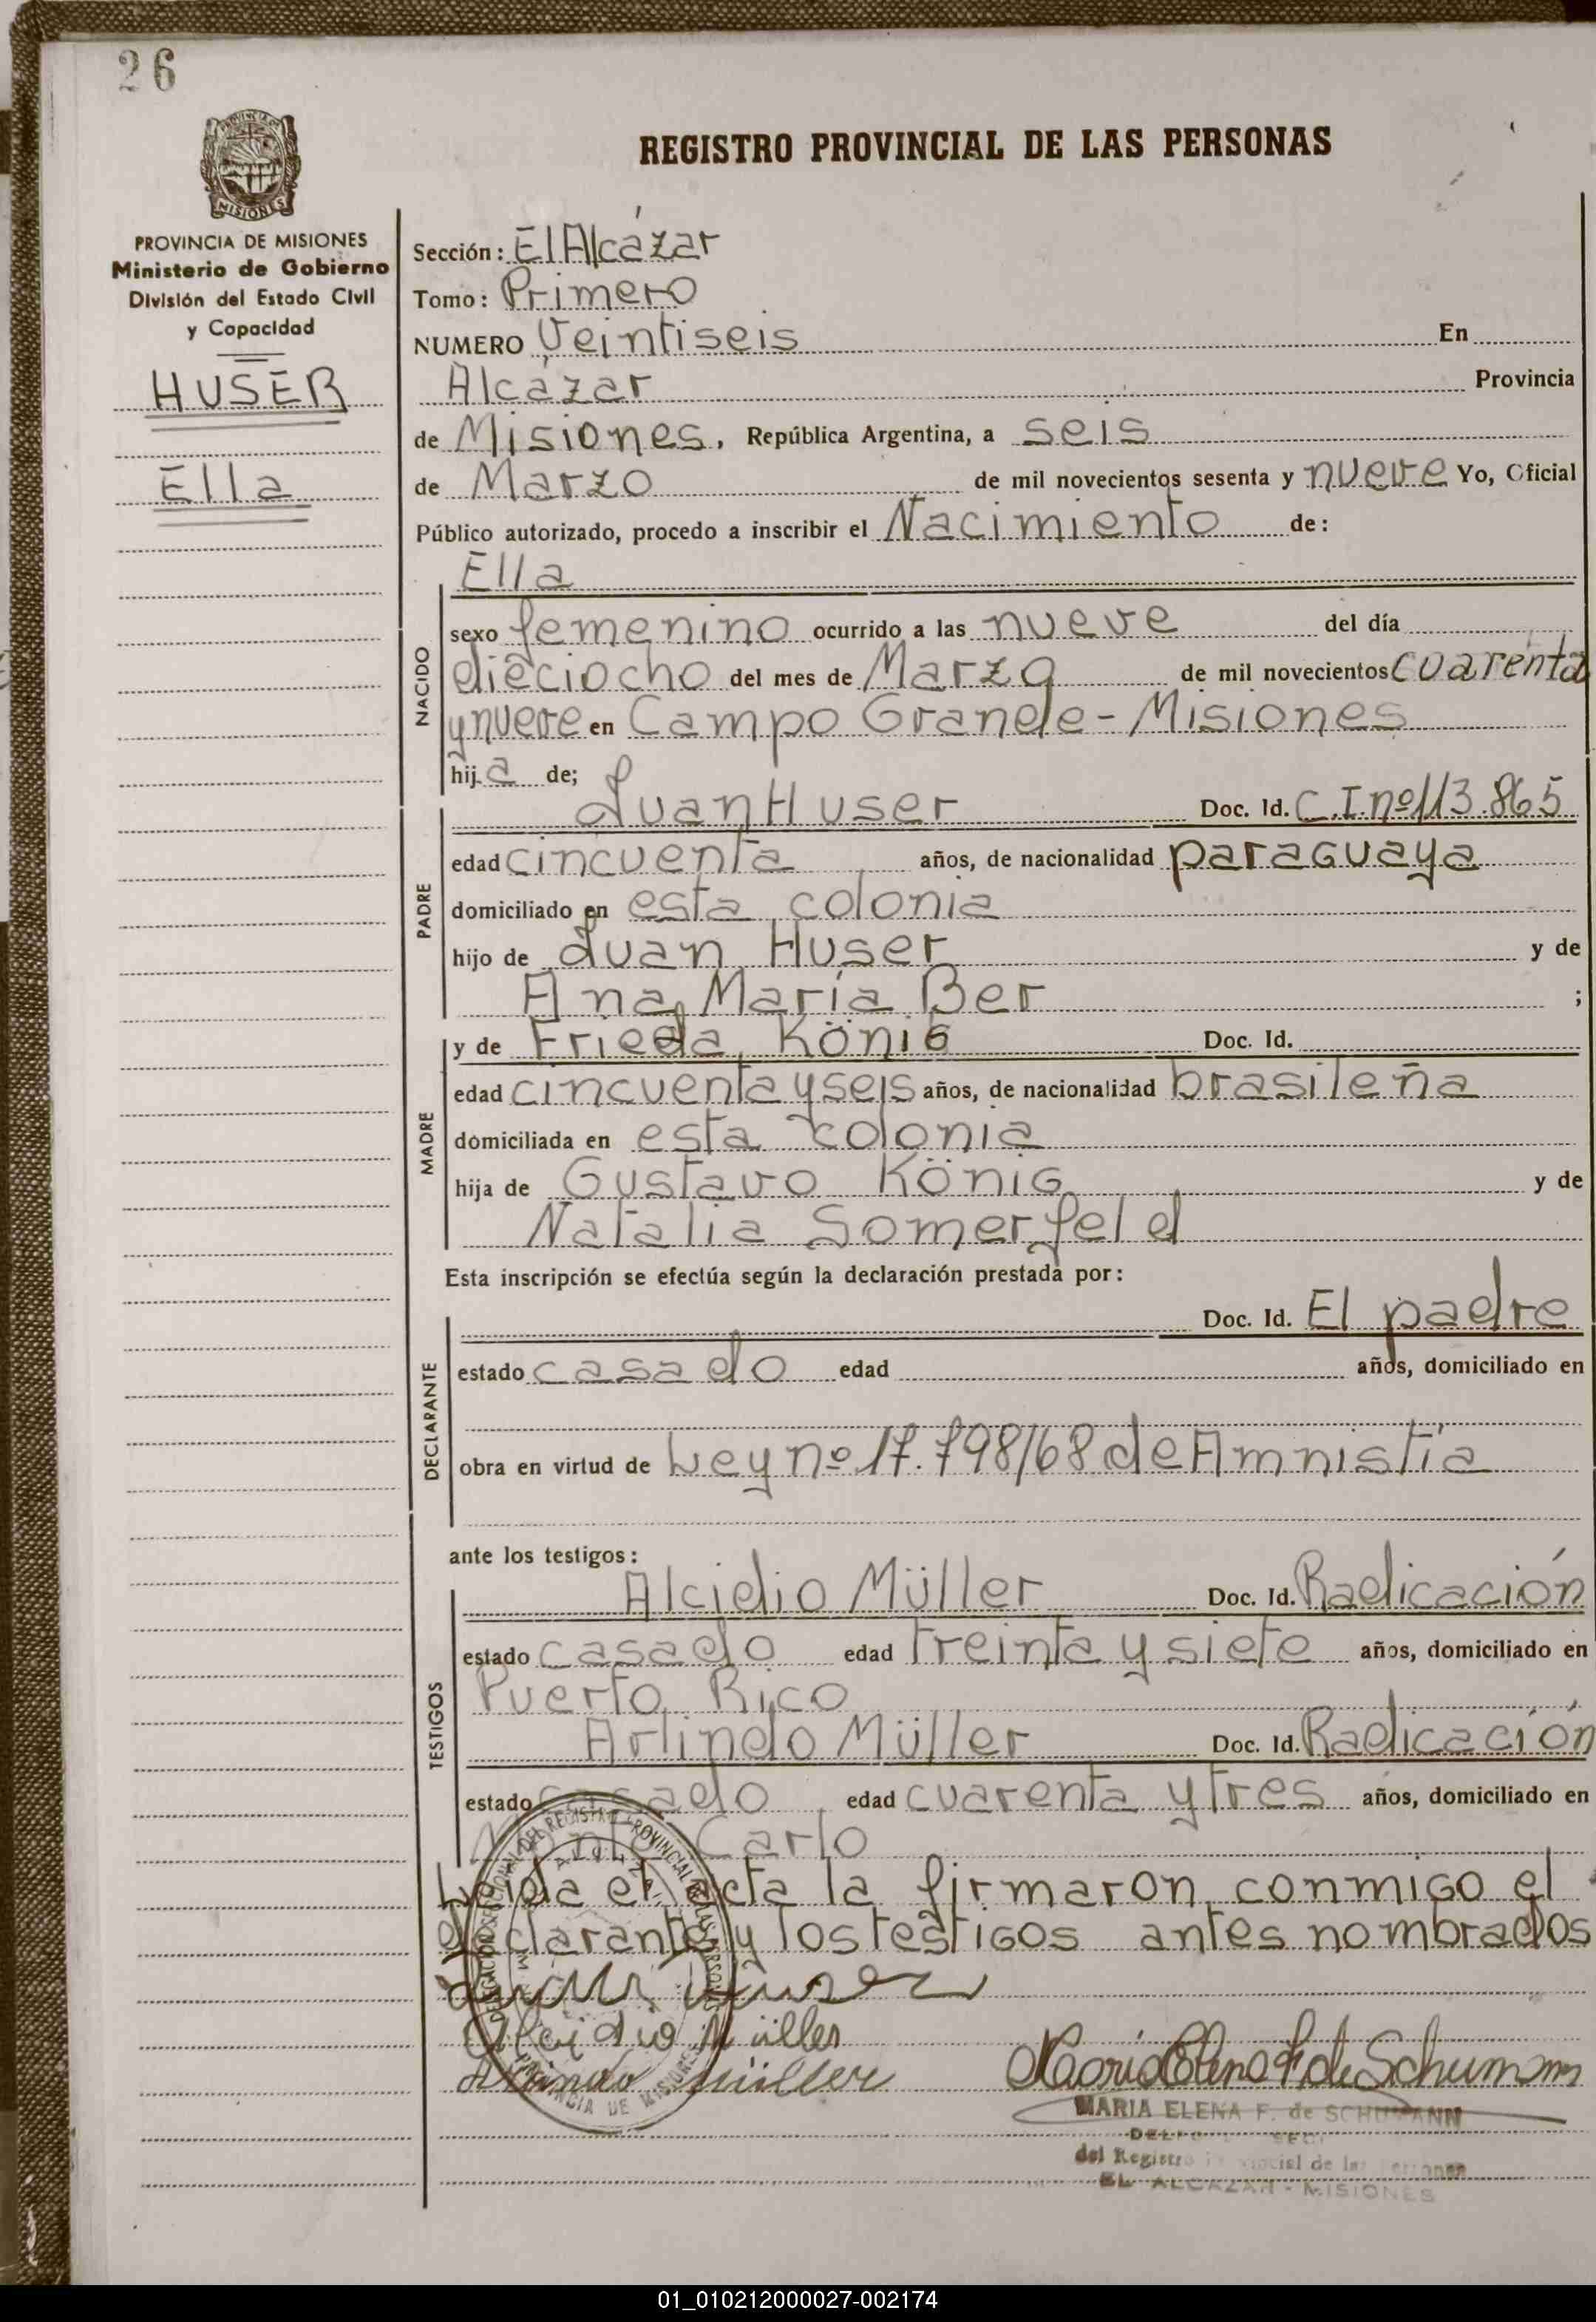 26
REGISTRO PROVINCIAL DE LAS PERSONAS
PROVINCIA DE MISIONES
Ministerio de Gobierno
División del Estado Civil
y Capacidad
HUSER
Ella
Sección: El Alcázar
Tomo: Primero
NUMERO Veintiseis En
Alcázar Provincia
de Misiones, República Argentina, a seis
de Marzo de mil novecientos sesenta y nueve Yo, Oficial
Público autorizado, procedo a inscribir el Nacimiento de:
Ella
NACIDO
sexo femenino ocurrido a las nueve del día
dieciocho del mes de Marzo de mil novecientos cuarenta
y nueve en Campo Grande - Misiones
hija de;
PADRE
Juan Huser Doc. Id. C.I. nº 113.865
edad cincuenta años, de nacionalidad paraguaya
domiciliado en esta colonia
hijo de Juan Huser y de
Ana María Ber ;
MADRE
y de Frieda König Doc. Id.
edad cincuenta y seis años, de nacionalidad brasileña
domiciliada en esta colonia
hija de Gustavo König y de
Natalia Somerfeld
Esta inscripción se efectúa según la declaración prestada por:
DECLARANTE
Doc. Id. El padre
estado casado edad años, domiciliado en
obra en virtud de Ley nº 17.798/68 de Amnistía
ante los testigos:
TESTIGOS
Alcidio Müller Doc. Id. Radicación
estado casado edad treinta y siete años, domiciliado en
Puerto Rico
Arlindo Müller Doc. Id. Radicación
estado casado edad cuarenta y tres años, domiciliado en
Carlo
Leida el acta la firmaron conmigo el
declarante y los testigos antes nombrados
Juan Huser
Alcidio Müller
Arlindo Müller
Maria Elena F. de Schumann
MARIA ELENA F. de SCHUMANN
del Registro Provincial de las Personas
EL ALCAZAR - MISIONES
01_010212000027-002174